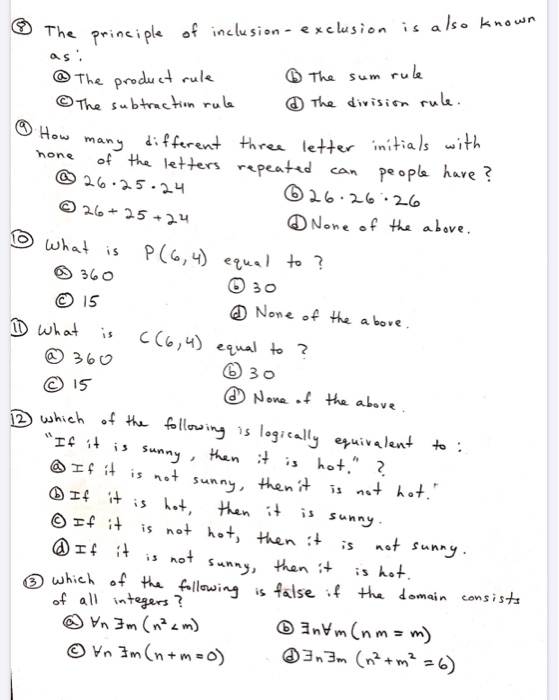 ⑧ The principle of inclusion-exclusion is also known
as:
ⓐ The product rule ⓑ The sum rule
ⓒ The subtraction rule ⓓ The division rule.
⑨ How many different three letter initials with
none of the letters repeated can people have?
ⓐ 26·25·24 ⓑ 26·26·26
ⓒ 26+25+24 ⓓ None of the above.
⑩ What is P(6,4) equal to?
ⓐ 360 ⓑ 30
ⓒ 15 ⓓ None of the above.
⑪ What is C(6,4) equal to?
ⓐ 360 ⓑ 30
ⓒ 15 ⓓ None of the above.
⑫ Which of the following is logically equivalent to:
"If it is sunny, then it is hot."?
ⓐ If it is not sunny, then it is not hot."
ⓑ If it is hot, then it is sunny.
ⓒ If it is not hot, then it is not sunny.
ⓓ If it is not sunny, then it is hot.
③ Which of the following is false if the domain consists
of all integers?
ⓐ ∀n ∃m (n²<m) ⓑ ∃n∀m (nm = m)
ⓒ ∀n ∃m (n+m=0) ⓓ ∃n∃m (n²+m²=6)